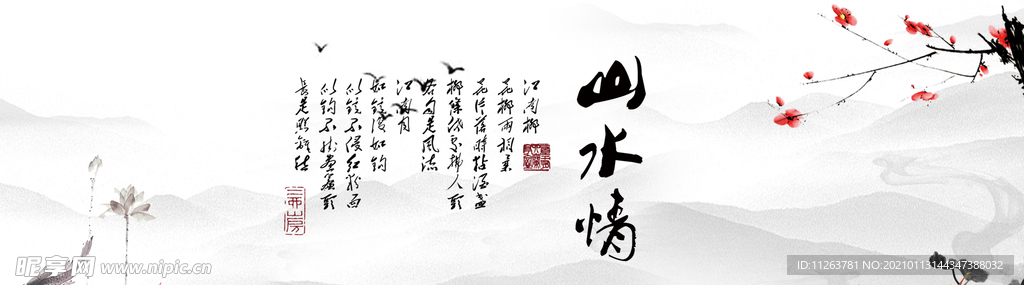 山水情
江南柳
花柳两相柔
花片落時粘酒盞
柳條低處拂人頭
各自是風流
江南月
如鏡復如鈎
似鏡不侵紅粉面
似鈎不挂畫簾頭
長是照離愁
昵享网 www.nipic.cn
ID:11263781 NO:20210113144347388032